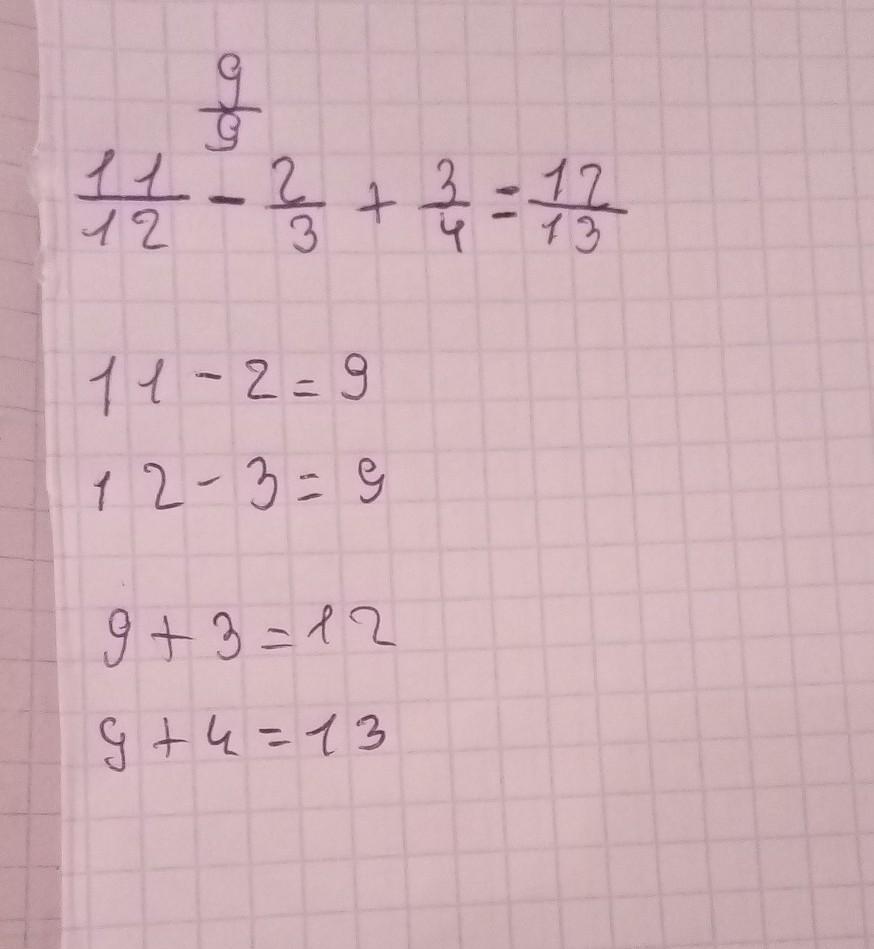 9/9
11/12 - 2/3 + 3/4 = 12/13
11 - 2 = 9
12 - 3 = 9
9 + 3 = 12
9 + 4 = 13